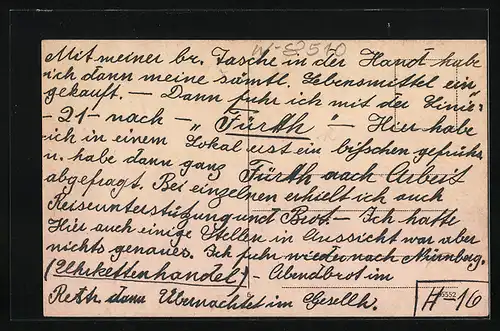 W-S2510
Mit meiner br. Tasche in der Hand habe
ich dann meine sämtl. Lebensmittel ein
gekauft. — Dann fuhr ich mit der Linie
-21- nach - "Fürth" - Hier habe
ich in einem Lokal erst ein bisschen gefrühst.
u. habe dann ganz Fürth nach Arbeit
abgefragt. Bei einzelnen erhielt ich auch
Reiseunterstützung und Brot. — Ich hatte
Hier auch einige Stellen in Aussicht war aber
nichts genaues. Ich fuhr wieder nach Nürnberg.
(Uhrkettenhandel) - Abendbrot im
Resth. dann Übernachtet im Gesellh.
H 16
5552